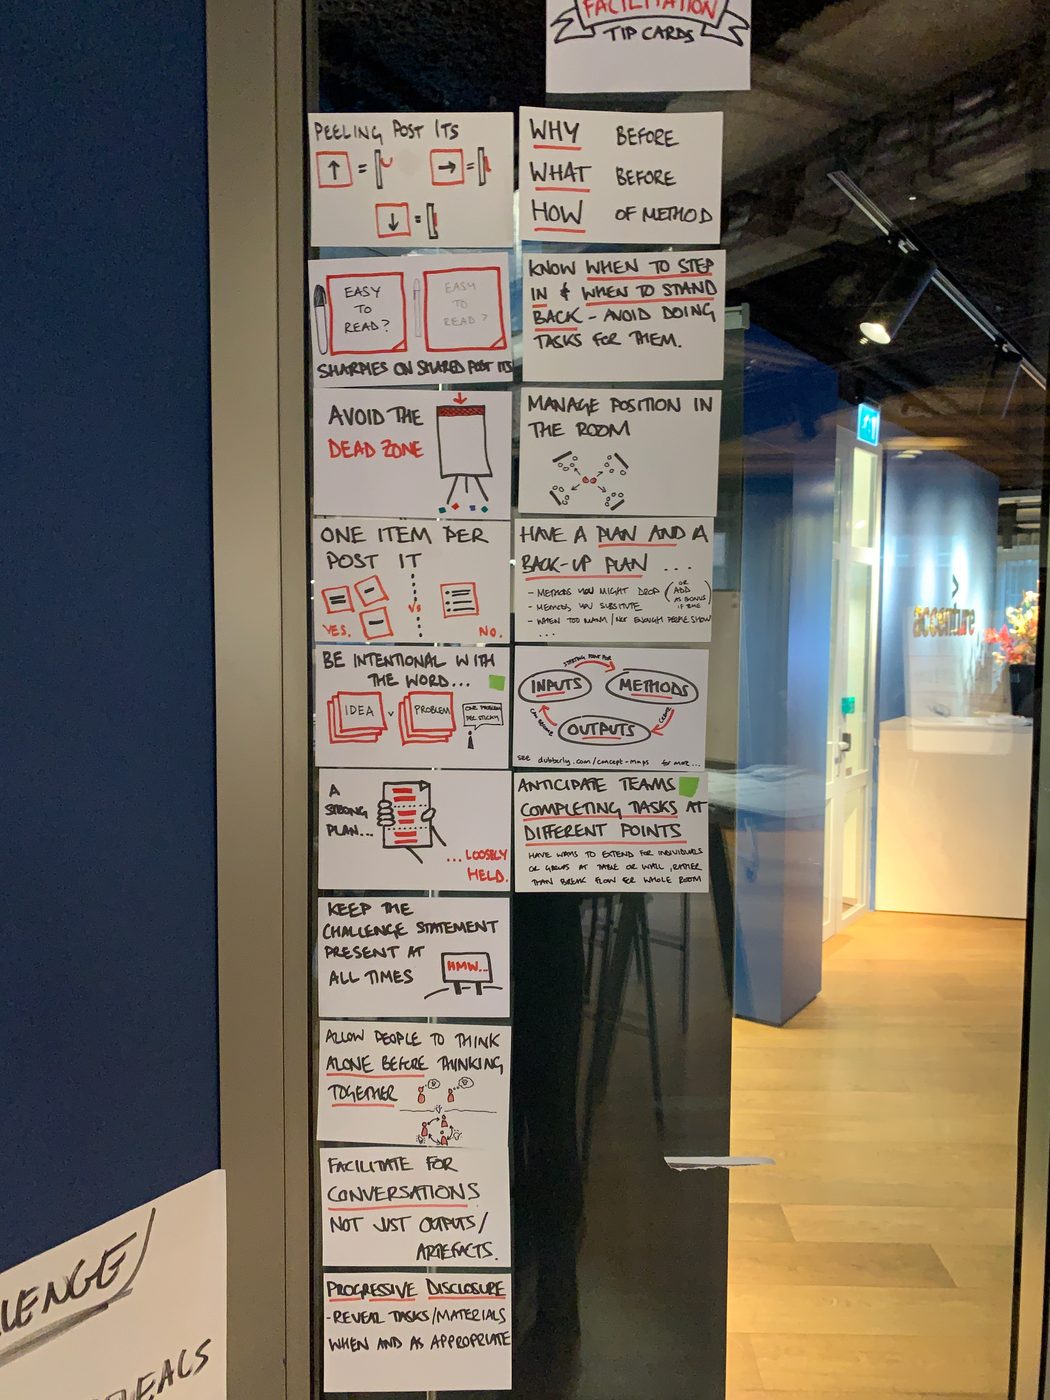 FACILITATION
TIP CARDS
PEELING POST ITS
↑ =
→ =
↓ =
EASY
TO
READ?
EASY
TO
READ?
SHARPIES ON SHARED POST ITS
AVOID THE
DEAD ZONE
ONE ITEM PER
POST IT
VS
YES.
NO.
BE INTENTIONAL WITH
THE WORD...
IDEA
v
PROBLEM
ONE PROBLEM
PER STICKY
A
STRONG
PLAN...
...LOOSELY
HELD.
KEEP THE
CHALLENGE STATEMENT
PRESENT AT
ALL TIMES
HMW...
ALLOW PEOPLE TO THINK
ALONE BEFORE THINKING
TOGETHER
FACILITATE FOR
CONVERSATIONS
NOT JUST OUTPUTS/
ARTEFACTS.
PROGRESSIVE DISCLOSURE
- REVEAL TASKS/MATERIALS
WHEN AND AS APPROPRIATE
WHY BEFORE
WHAT BEFORE
HOW OF METHOD
KNOW WHEN TO STEP
IN & WHEN TO STAND
BACK - AVOID DOING
TASKS FOR THEM.
MANAGE POSITION IN
THE ROOM
HAVE A PLAN AND A
BACK-UP PLAN ....
- METHODS YOU MIGHT DROP (OR ADD AS BONUS IF TIME)
- METHODS YOU SUBSTITUTE
- WHEN TOO MANY/NOT ENOUGH PEOPLE SHOW
...
STARTING POINT FOR
INPUTS
METHODS
CREATE
OUTPUTS
CAN BECOME
SEE dubberly.com/concept-maps for more...
ANTICIPATE TEAMS
COMPLETING TASKS AT
DIFFERENT POINTS
HAVE WAYS TO EXTEND FOR INDIVIDUALS
OR GROUPS AT TABLE OR WALL, RATHER
THAN BREAK FLOW FOR WHOLE ROOM
accenture
LENGE
EALS